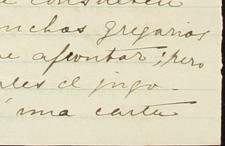 e consideren
nchos gregarios
e afrontar; pero
les el jugo.
una carta